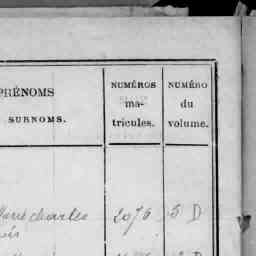 PRÉNOMS
SURNOMS.
NUMÉROS
ma-
tricules.
NUMÉRO
du
volume.
charles 2076 5 D